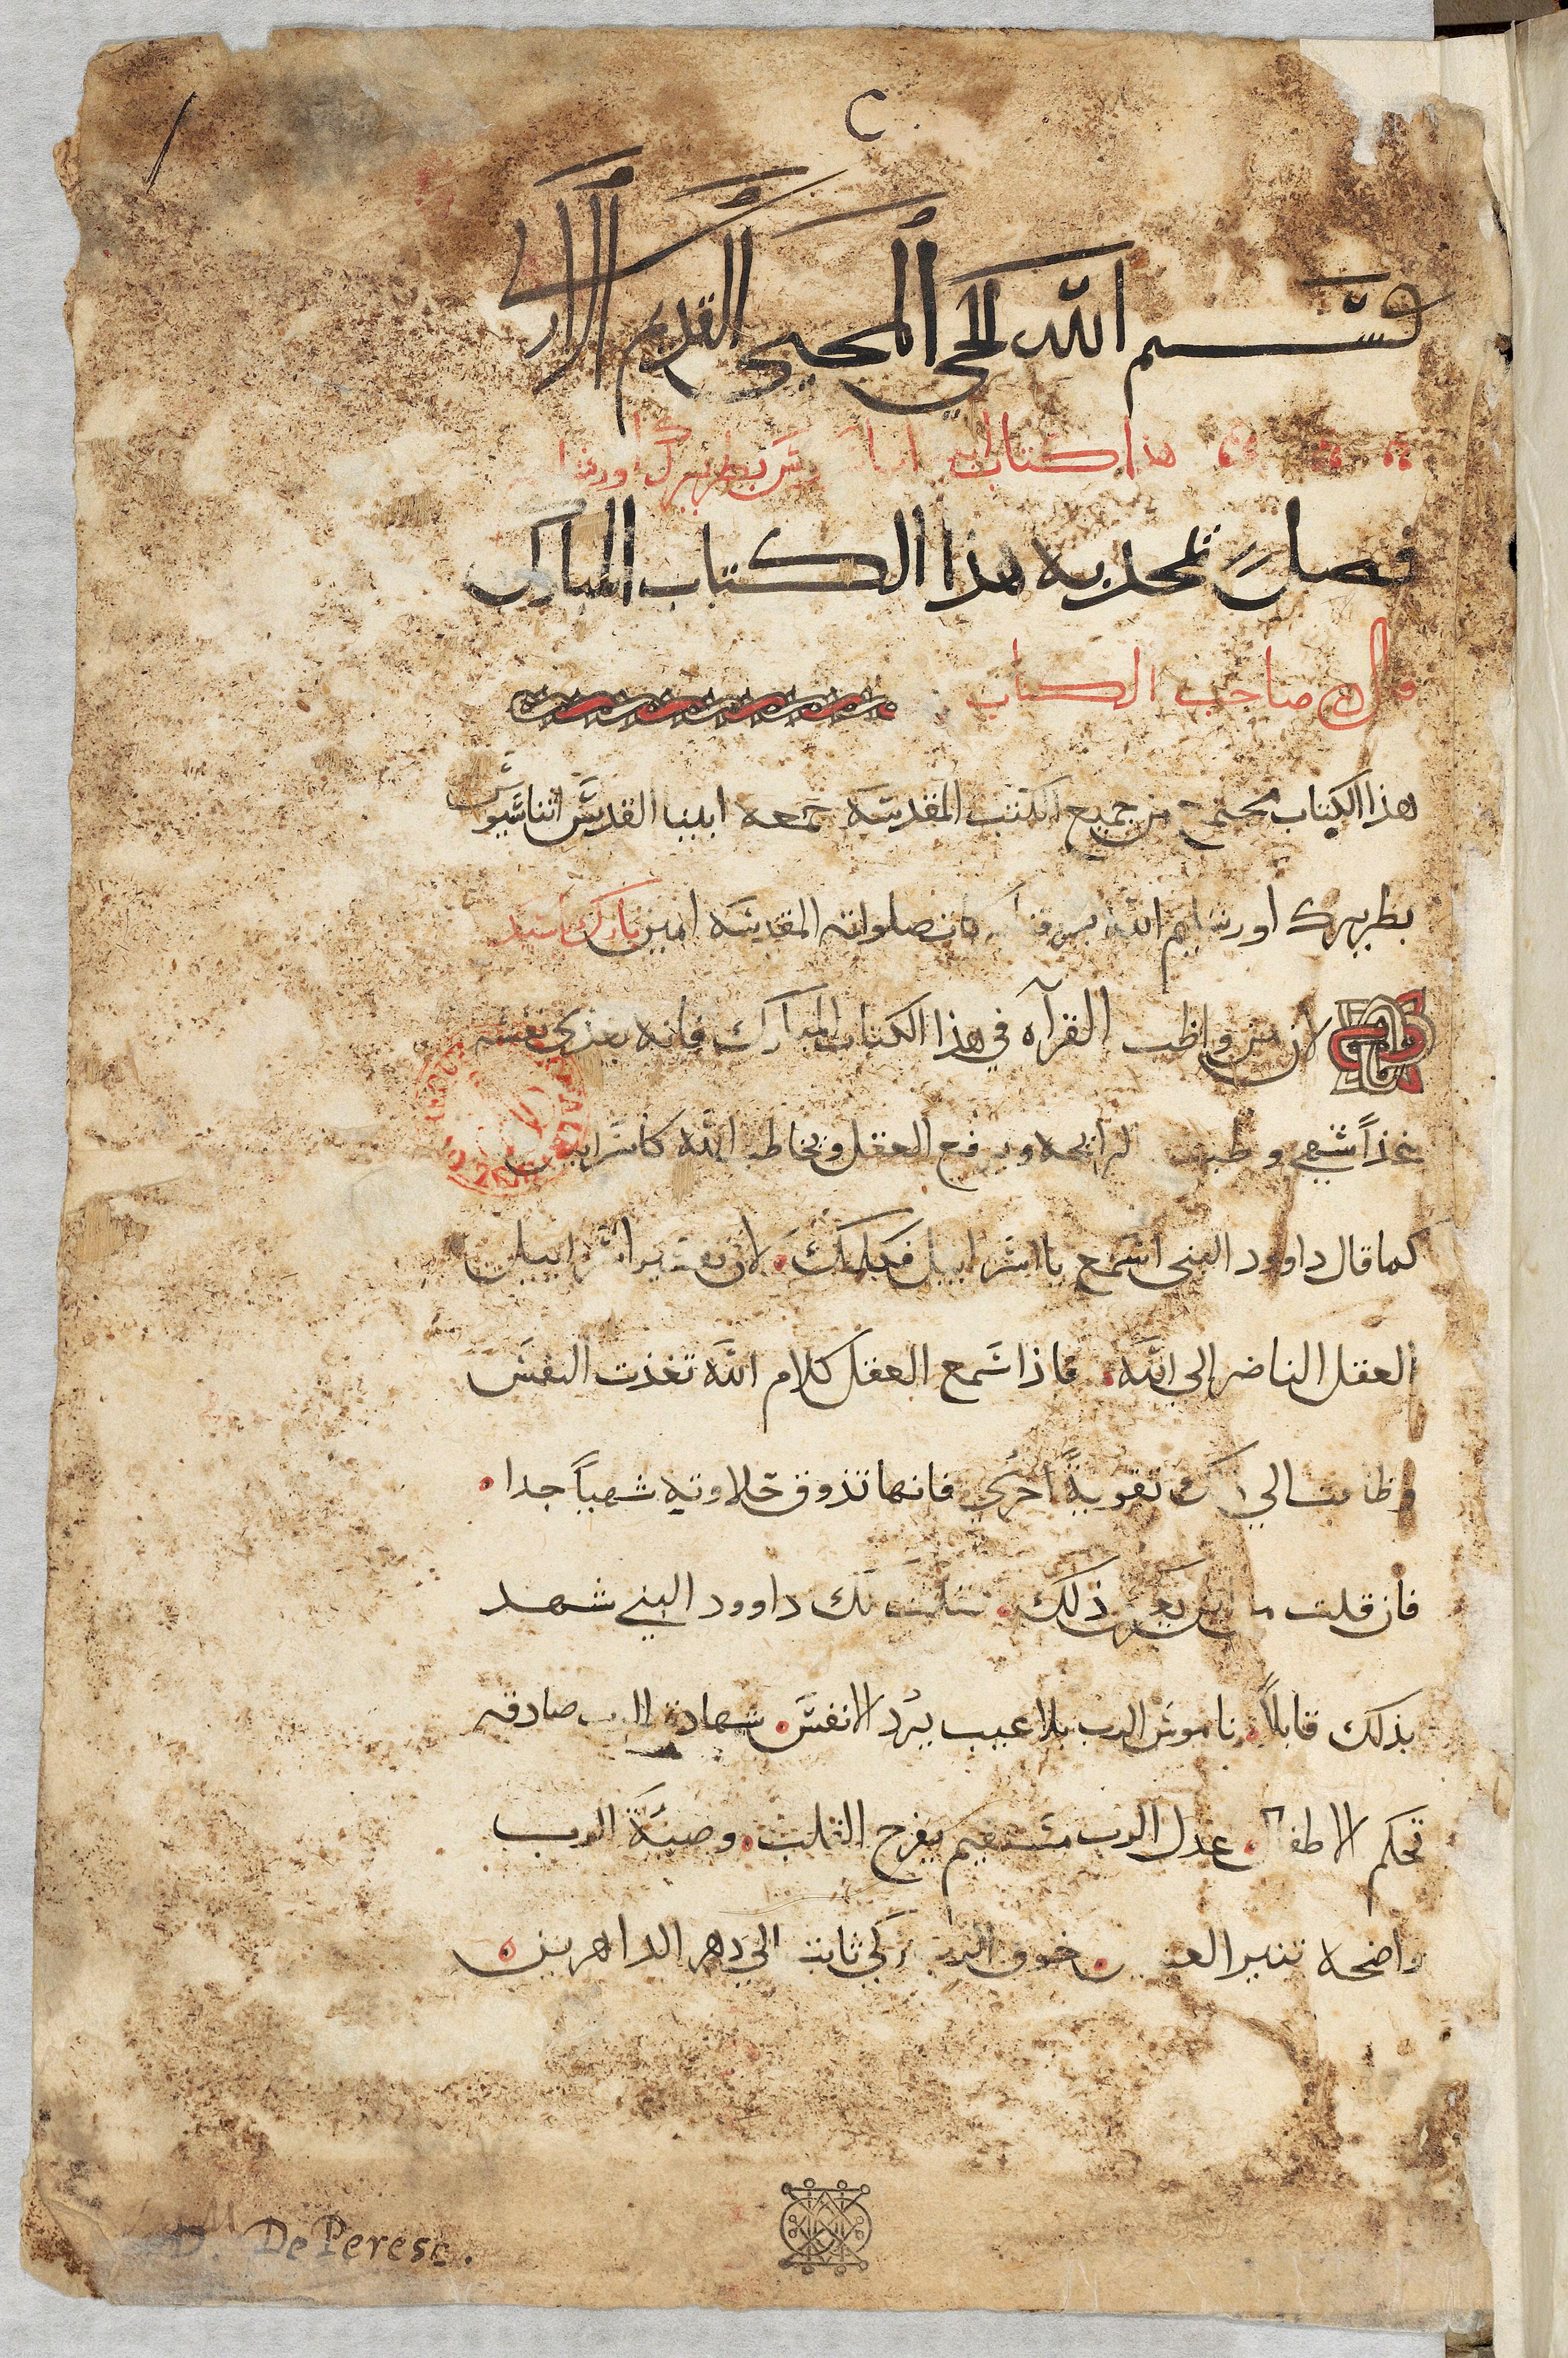 بسم الله الحي المحيي القديم الازلي
هذا كتاب بطريرك اورش
فصل تحديه هذا الكتاب المبارك
قال صاحب الكتاب
هذا الكتاب مجتمع من جميع الكتب المقدسة جمعه ابينا القديس اثناسيوس
بطريرك اورشليم الله يرزقنا بركات صلواته المقدسة امين بارك
لان من واظب القرآه في هذا الكتاب المبارك فانه يغذي نفسه
غذاً شهي وطيب الرايحه ويرفع العقل ويخاطب الله كاسراييل
كما قال داوود النبي اسمع يا اسراييل فكلمك لان تفسير اسراييل
العقل الناضر الي الله فاذا سمع العقل كلام الله تغذت النفس
تقويةً اخري فانها تذوق حلاوته شهياً جدا
فان قلت يكون ذلك لك داوود النبي شهد
بذلك قايلاً ناموس الرب بلا عيب يرد الانفس شهادة الرب صادقه
تحكم الاطفال عدل الرب مستقيم يفرح القلب وصية الرب
واضحه تنير خوف الرب زكي ثابت الي دهر الداهرين
D. M De Peresc.